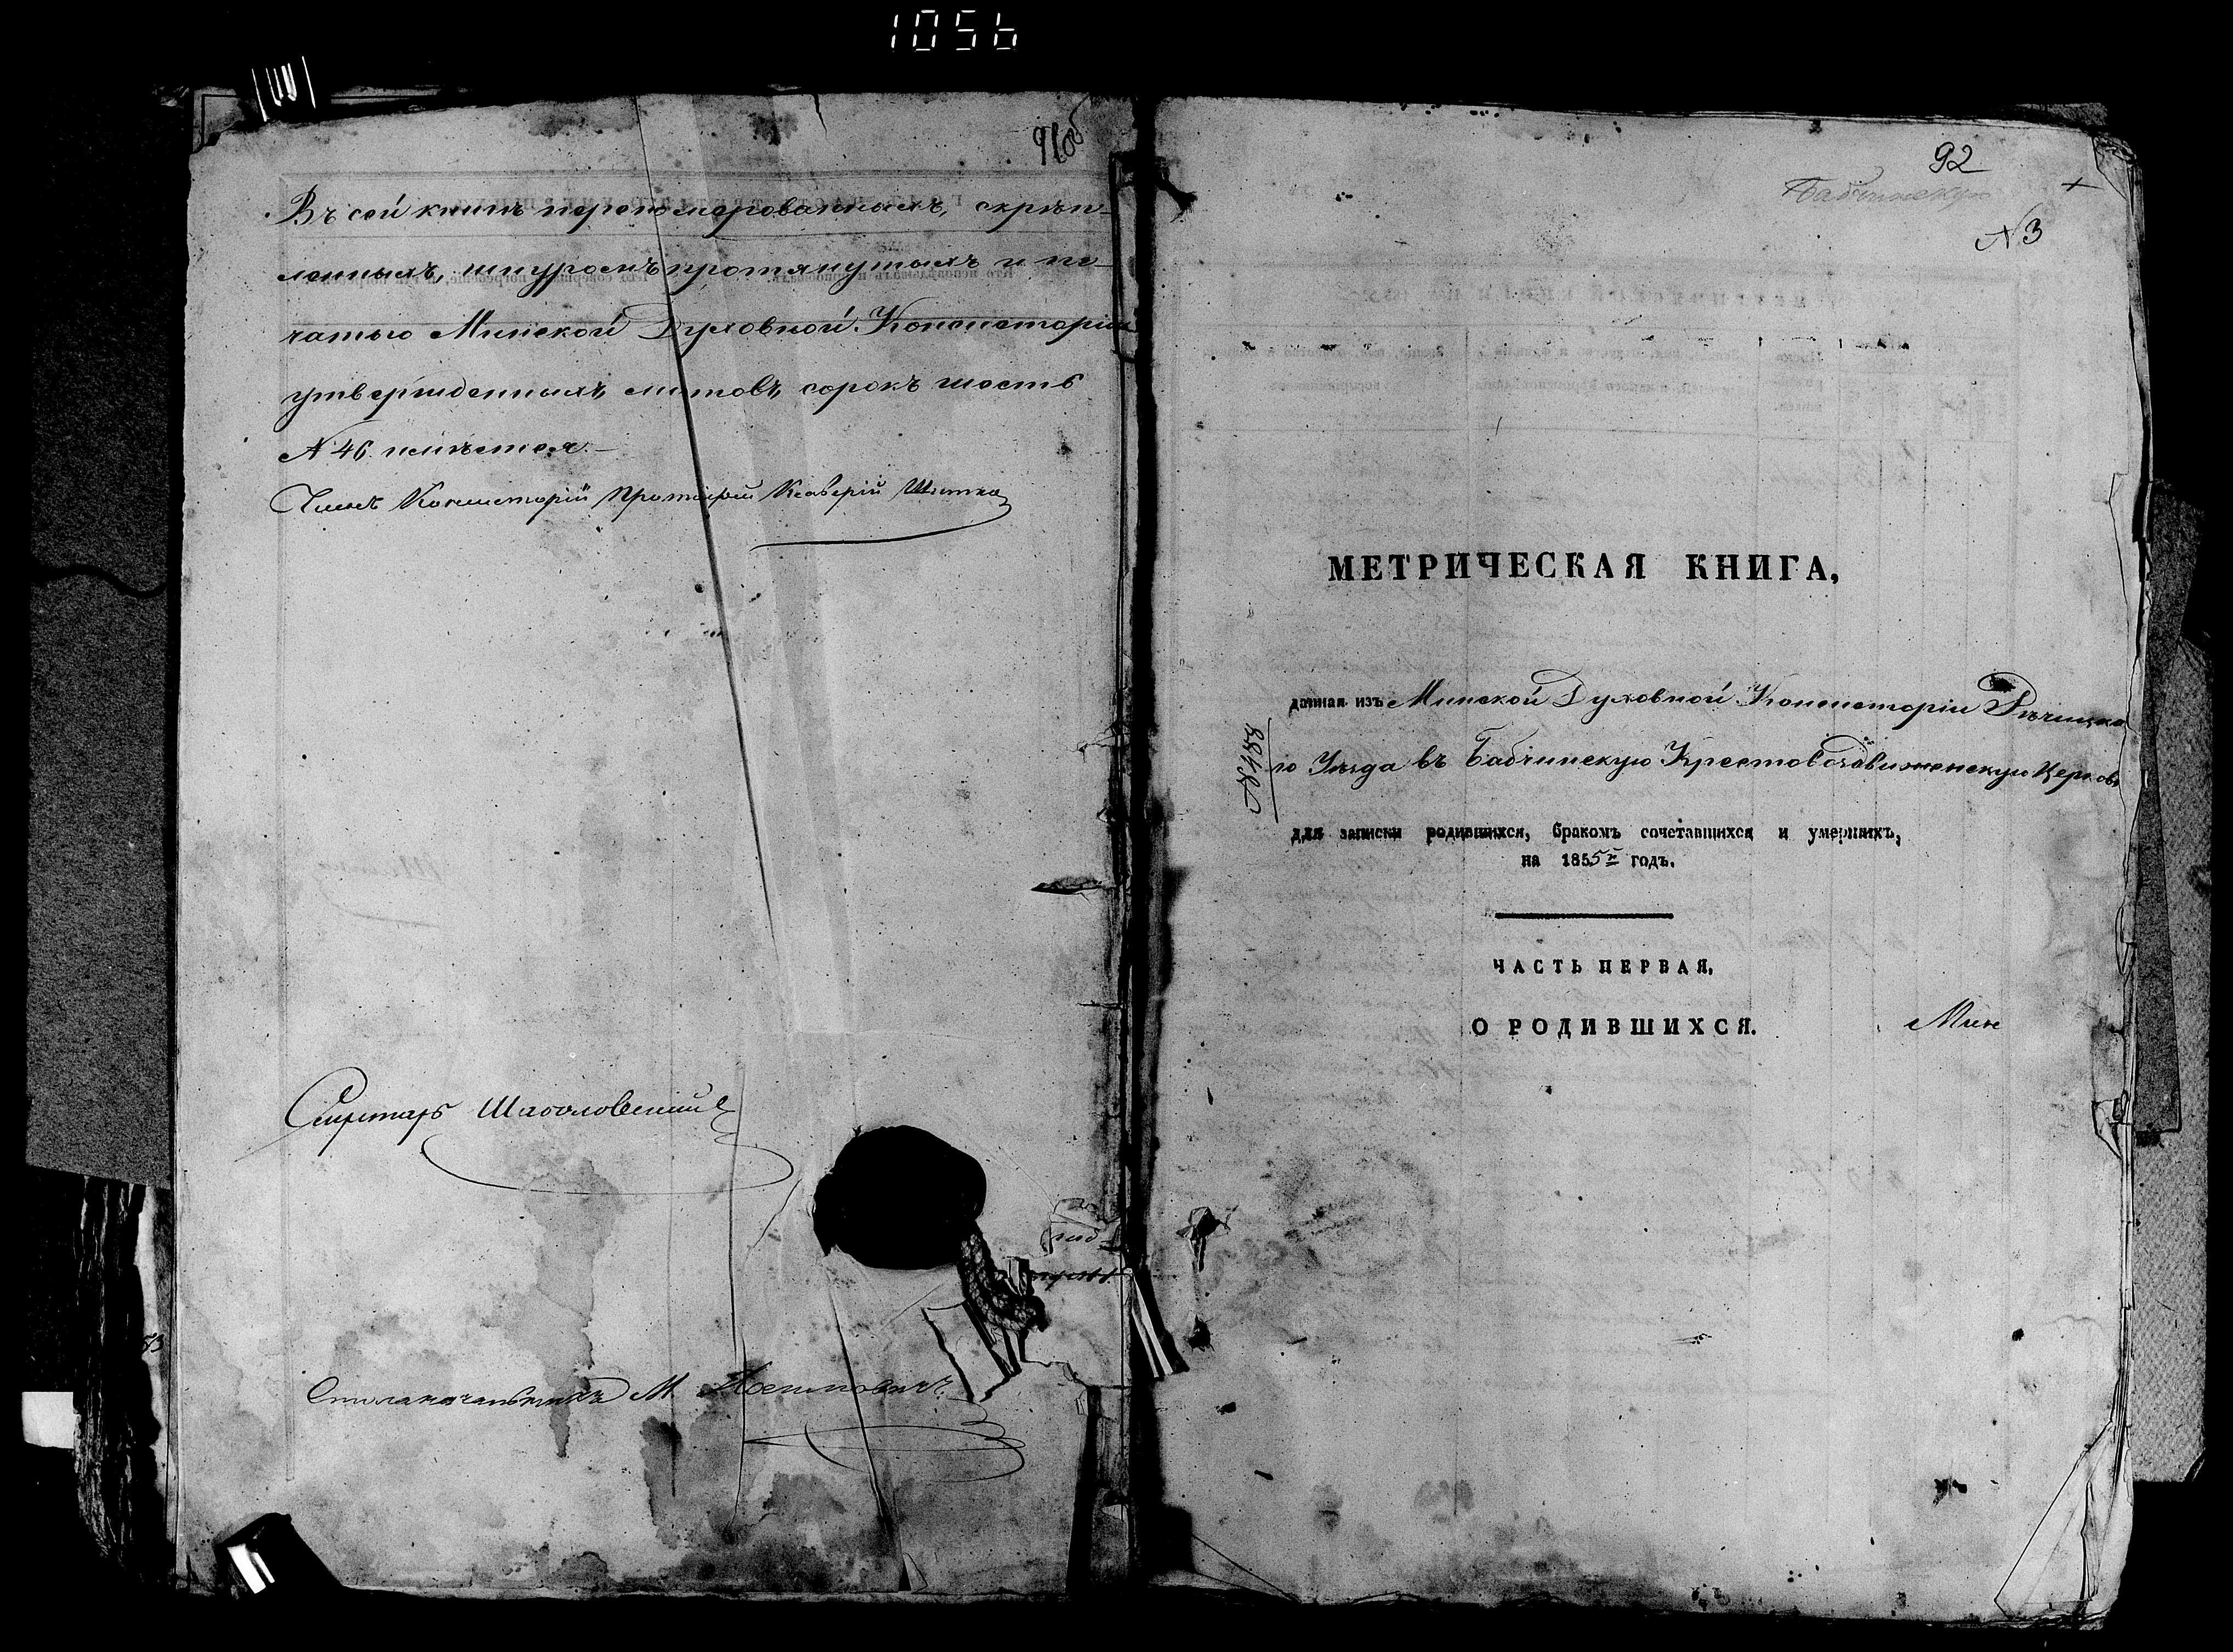 1056
91об
Въ сей книгѣ перенумерованныхъ, скрѣп-
ленныхъ, шнуромъ протянутыхъ и пе-
чатью Минской Духовной Консисторіи
утвержденныхъ листовъ сорокъ шесть
№ 46. имѣется.—
Членъ Консисторіи Протоіерей
Секретарь
Столоначальникъ М.
92
Бабчинскую
№ 3
МЕТРИЧЕСКАЯ КНИГА,
данная изъ Минской Духовной Консисторіи Рѣчицка
го Уѣзда въ Бабчинскую Крестовоздвиженскую Церковь
№ 488
для записки родившихся, бракомъ сочетавшихся и умершихъ,
на 1855й годъ.
ЧАСТЬ ПЕРВАЯ,
О РОДИВШИХСЯ.
Мин